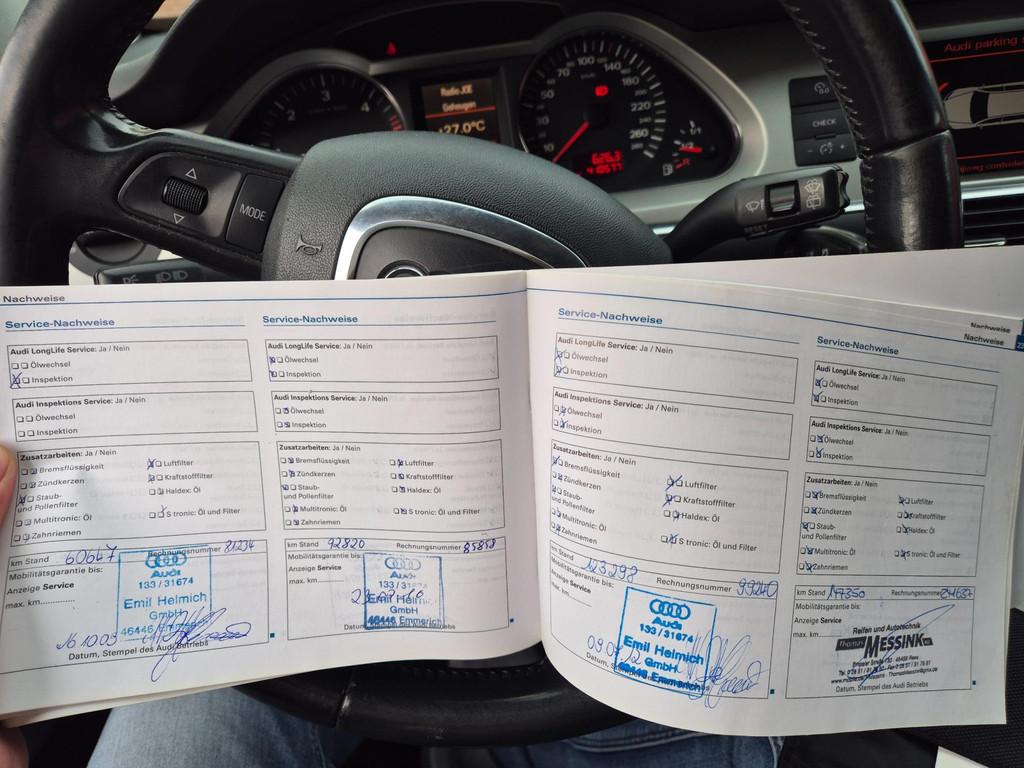 Radio JOE
Gehwagen
+27.0°C
2
3
4
10
30
50
70
100
140
180
220
260
km/h
626.3
410577
1/1
1/2
R
Audi parking s
CHECK
MODE
RESET
Nachweise
Service-Nachweise
Audi LongLife Service: Ja / Nein
Ölwechsel
Inspektion
Audi Inspektions Service: Ja / Nein
Ölwechsel
Inspektion
Zusatzarbeiten: Ja / Nein
Bremsflüssigkeit
Luftfilter
Zündkerzen
Kraftstofffilter
Staub-
und Pollenfilter
Haldex: Öl
Multitronic: Öl
S tronic: Öl und Filter
Zahnriemen
km Stand 60647 Rechnungsnummer 81234
Mobilitätsgarantie bis:
Anzeige Service
max. km
Audi
133 / 31674
Emil Helmich
GmbH
46446 Emmerich
16.10.09
Datum, Stempel des Audi Betriebs
Service-Nachweise
Audi LongLife Service: Ja / Nein
Ölwechsel
Inspektion
Audi Inspektions Service: Ja / Nein
Ölwechsel
Inspektion
Zusatzarbeiten: Ja / Nein
Bremsflüssigkeit
Luftfilter
Zündkerzen
Kraftstofffilter
Staub-
und Pollenfilter
Haldex: Öl
Multitronic: Öl
S tronic: Öl und Filter
Zahnriemen
km Stand 92820 Rechnungsnummer 85858
Mobilitätsgarantie bis:
Anzeige Service
max. km
Audi
133 / 31674
Emil Helmich
GmbH
46446 Emmerich
Service-Nachweise
Audi LongLife Service: Ja / Nein
Ölwechsel
Inspektion
Audi Inspektions Service: Ja / Nein
Ölwechsel
Inspektion
Zusatzarbeiten: Ja / Nein
Bremsflüssigkeit
Luftfilter
Zündkerzen
Kraftstofffilter
Staub-
und Pollenfilter
Haldex: Öl
Multitronic: Öl
S tronic: Öl und Filter
Zahnriemen
km Stand 123298 Rechnungsnummer 99240
Mobilitätsgarantie bis:
Anzeige Service
max. km
Audi
133 / 31674
Emil Helmich
GmbH
46446 Emmerich
Nachweise
Nachweise
Service-Nachweise
Audi LongLife Service: Ja / Nein
Ölwechsel
Inspektion
Audi Inspektions Service: Ja / Nein
Ölwechsel
Inspektion
Zusatzarbeiten: Ja / Nein
Bremsflüssigkeit
Luftfilter
Zündkerzen
Kraftstofffilter
Staub-
und Pollenfilter
Haldex: Öl
Multitronic: Öl
S tronic: Öl und Filter
Zahnriemen
km Stand 147350 Rechnungsnummer 24637
Mobilitätsgarantie bis:
Anzeige Service
max. km
Reifen und Autotechnik
Thomas MESSINK
Datum, Stempel des Audi Betriebs